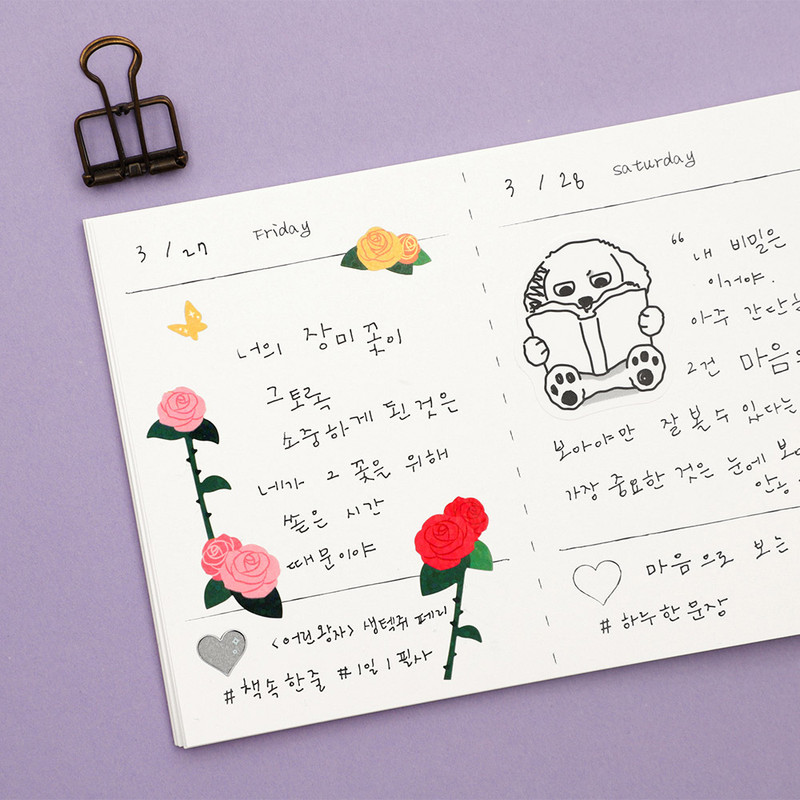 3 / 27 Friday
너의 장미꽃이
그토록
소중하게 된 것은
네가 그 꽃을 위해
쏟은 시간
때문이야
<어린왕자> 생텍쥐페리
#책속한줄 #1일1필사
3 / 28 saturday
“ 내 비밀은
이거야.
아주 간단한
그건 마음으
보아야만 잘 볼 수 있다는
가장 중요한 것은 눈에 보
안
마음으로 보는
#하루한문장